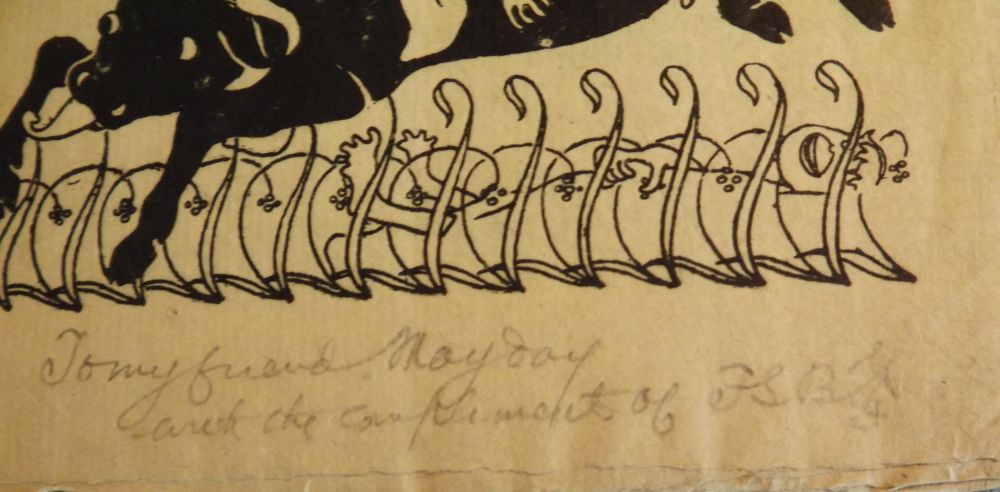 To my friend May day
with the compliments of F S B